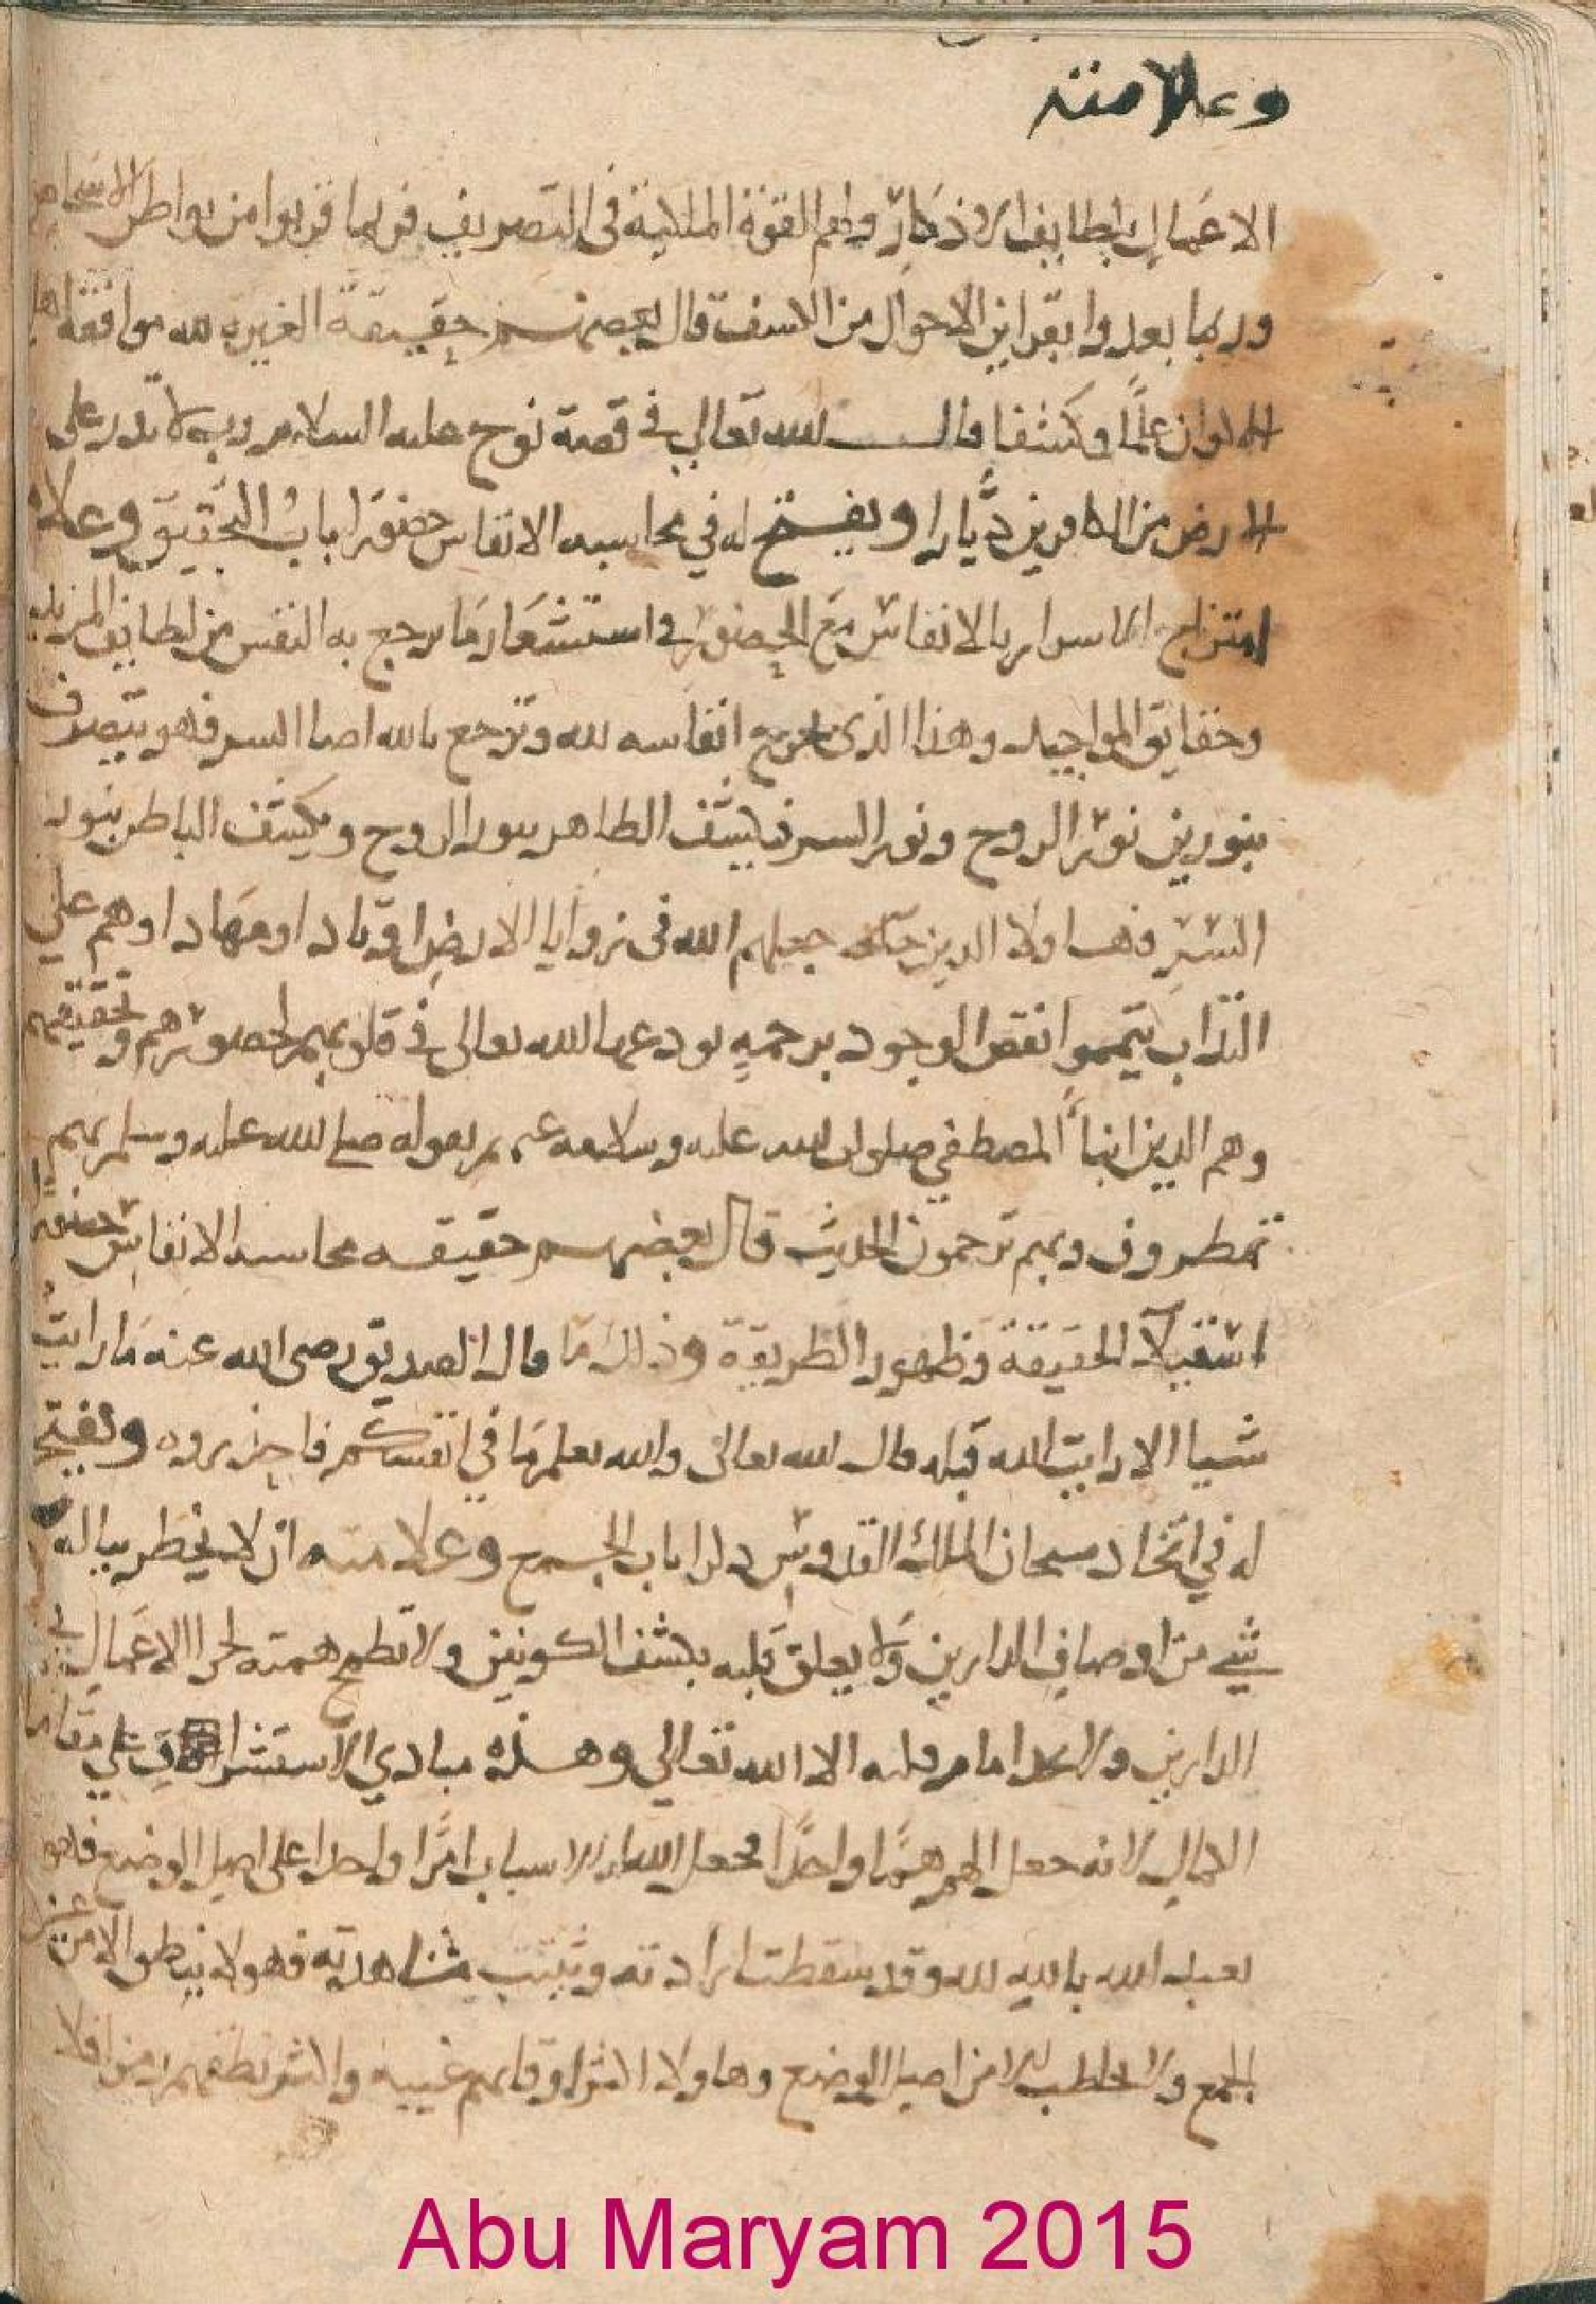 وعلامته
الاعمال بلطايف الاذكار ولهم القوة الملكية في التصريف فربما قربوا من بواطن
وربما بعدوا بقراين الاحوال من الاسف قال بعضهم حقيقة الغيره لله موافقة
الاكوان علما وكشفا قال الله تعالى في قصة نوح عليه السلام رب لا تذر على
الارض من الكافرين ديارا ويفتح له في محاسبه الانفاس حضورا باب التحقيق وعلامة
امتزاج الاسرار بالانفاس مع الحضور في استشعار ما يرجع به النفس من لطايف المزيد
وحقايق المواجيد وهذا الذي تخرج انفاسه لله وترجع بالله اصل السر فهو يتصرف
بنورين نور الروح ونور السر فيكشف الظاهر بنور الروح ويكشف الباطن بنور
السر فهاولا الذين جعلهم الله في زوايا الارض اوتادا ومهادا وهم على
التراب يتمموا نقص الوجود برحمة يودعها الله تعالى في قلوبهم لحضورهم وتحقيقهم
وهم الذين انبا المصطفى صلوات الله عليه وسلامه عنهم بقوله صلى الله عليه وسلم بهم
تمطرون وبهم ترحمون الحديث قال بعضهم حقيقه محاسبه الانفاس حضورا
استقبال الحقيقة وظهور الطريقة وذلك ما قال الصديق رضي الله عنه ما رايت
شيا الا رايت الله قبله قال الله تعالى والله يعلم ما في انفسكم فاحذروه ويفتح
له في اتخاد سبحان الملك القدوس ذكرا باب الجمع وعلامته ان لا يخطر بباله
شي من اوصاف الدارين ولا يعلق قلبه بكشف الكونين ولا تطمح همته لجزا الاعمال في
الدارين ولا يجد امام قلبه الا الله تعالى وهذه مبادي الاستشراف على مقامات
الكمال لانه جعل الهم هما واحدا فجعل الله له الاسباب امرا واحدا على اصل الوضع فهو
يعبد الله بالله لله وقد سقطت ارادته وثبتت مشاهدته فهو لا ينطق الا من عين
الجمع ولا يخاطب الا من اصل الوضع وهاولا اكثر اوقاتهم غيبه واكثر نطقهم رمزا فلا
Abu Maryam 2015